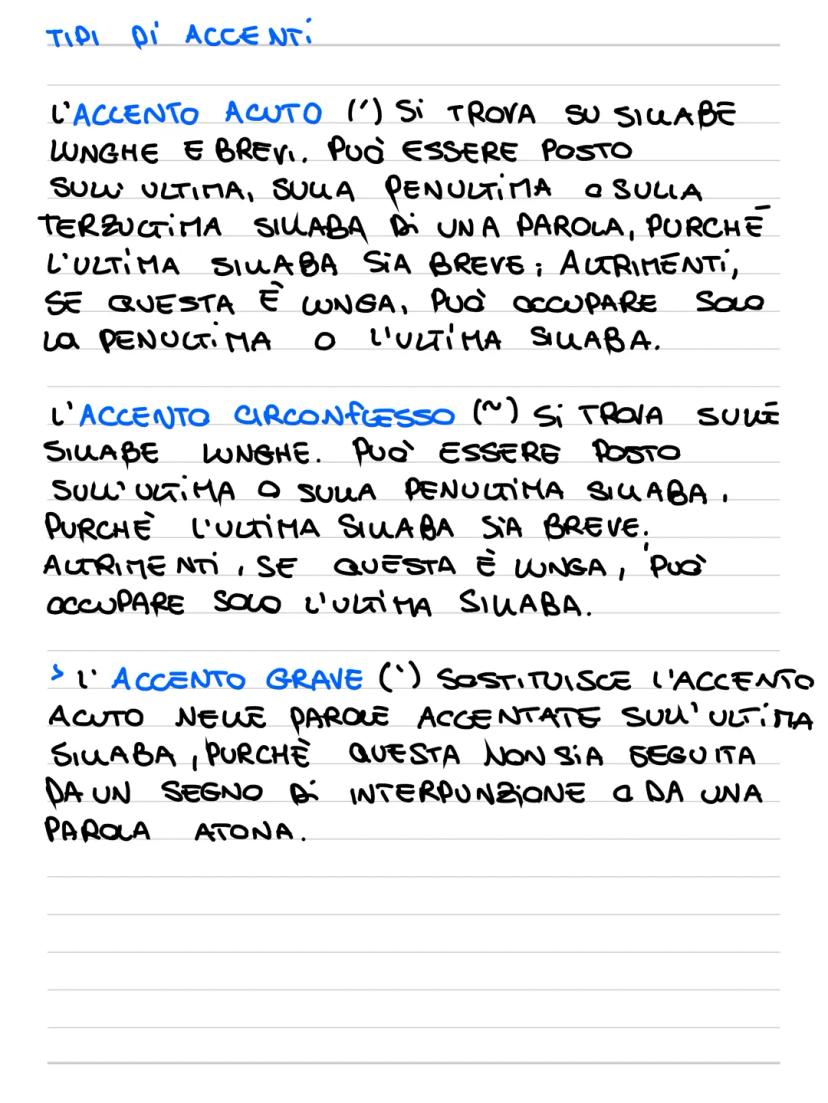 TIPI DI ACCENTI
L'ACCENTO ACUTO (´) SI TROVA SU SILLABE
LUNGHE E BREVI. PUÒ ESSERE POSTO
SULL'ULTIMA, SULLA PENULTIMA O SULLA
TERZULTIMA SILLABA DI UNA PAROLA, PURCHÉ
L'ULTIMA SILLABA SIA BREVE; ALTRIMENTI,
SE QUESTA È LUNGA, PUÒ OCCUPARE SOLO
LA PENULTIMA O L'ULTIMA SILLABA.
L'ACCENTO CIRCONFLESSO (~) SI TROVA SULLE
SILLABE LUNGHE. PUÒ ESSERE POSTO
SULL'ULTIMA O SULLA PENULTIMA SILLABA,
PURCHÈ L'ULTIMA SILLABA SIA BREVE.
ALTRIMENTI, SE QUESTA È LUNGA, PUÒ
OCCUPARE SOLO L'ULTIMA SILLABA.
> L'ACCENTO GRAVE (`) SOSTITUISCE L'ACCENTO
ACUTO NELLE PAROLE ACCENTATE SULL'ULTIMA
SILLABA, PURCHÈ QUESTA NON SIA SEGUITA
DA UN SEGNO DI INTERPUNZIONE O DA UNA
PAROLA ATONA.